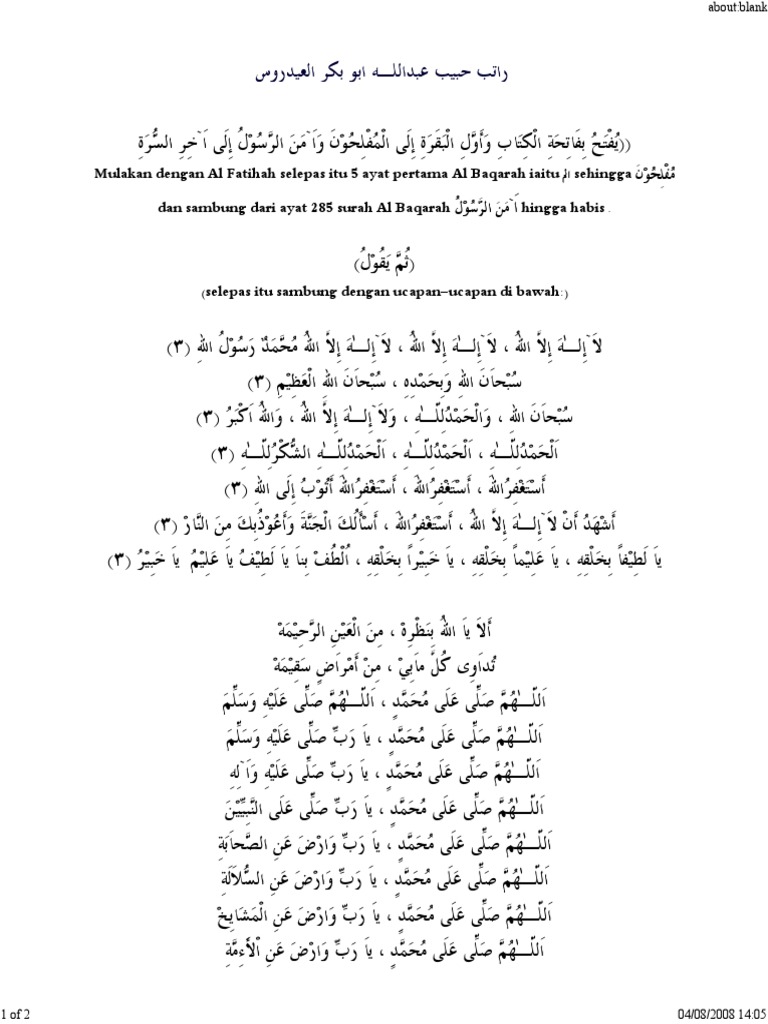 about:blank
راتب حبيب عبداللـــه ابو بكر العيدروس
((يُفْتَحُ بِفَاتِحَةِ الْكِتَابِ وَأَوَّلِ الْبَقَرَةِ إِلَى الْمُفْلِحُوْنَ وَآمَنَ الرَّسُوْلُ إِلَى آخِرِ السُّرَةِ
Mulakan dengan Al Fatihah selepas itu 5 ayat pertama Al Baqarah iaitu الم sehingga مُفْلِحُوْنَ
dan sambung dari ayat 285 surah Al Baqarah آمَنَ الرَّسُوْلُ hingga habis .
(ثُمَّ يَقُوْلُ)
(selepas itu sambung dengan ucapan-ucapan di bawah:)
لَآ إِلـــٰهَ إِلاَّ اللهُ ، لَآ إِلـــٰهَ إِلاَّ اللهُ ، لَآ إِلـــٰهَ إِلاَّ اللهُ مُحَّمَدٌ رَسُوْلُ اللهِ (٣)
سُبْحاَنَ اللهِ وَبِحَمْدِهِ ، سُبْحاَنَ اللهِ الْعَظِيْمِ (٣)
سُبْحاَنَ اللهِ ، وَالْحَمْدُلِلّـــٰهِ ، وَلَآ إِلـــٰهَ إِلاَّ اللهُ ، وَاللهُ اَكْبَرُ (٣)
اَلْحَمْدُلِلّـــٰهِ ، اَلْحَمْدُلِلّـــٰهِ ، اَلْحَمْدُلِلّـــٰهِ الشُّكْرُلِلّـــٰهِ (٣)
أَسْتَغْفِرُاللهَ ، أَسْتَغْفِرُاللهَ ، أَسْتَغْفِرُاللهَ أَتُوْبُ إِلَى اللهِ (٣)
أَشْهَدُ أَنْ لَآ إِلـــٰهَ إِلاَّ اللهُ ، أَسْتَغْفِرُاللهَ ، أَسْأَلُكَ الْجَنَّةَ وَأَعُوْذُبِكَ مِنَ النَّارْ (٣)
ياَ لَطِيْفاً بِخَلْقِهِ ، ياَ عَلِيْماً بِخَلْقِهِ ، ياَ خَبِيْراً بِخَلْقِهِ ، اُلْطُفْ بِناَ ياَ لَطِيْفُ ياَ عَلِيْمُ ياَ خَبِيْرُ (٣)
أَلاَ ياَ اللهُ بِنَظْرِهْ ، مِنَ الْعَيْنِ الرَّحِيْمَهْ
تُدَاوِى كُلَّ ماَبِيْ ، مِنْ أَمْرَاضٍ سَقِيْمَهْ
اَللّـــٰهُمَّ صَلِّى عَلَى مُحَمَّدٍ ، اَللّـــٰهُمَّ صَلِّى عَلَيْهِ وَسَلِّمَ
اَللّـــٰهُمَّ صَلِّى عَلَى مُحَمَّدٍ ، ياَ رَبِّ صَلِّى عَلَيْهِ وَسَلِّمَ
اَللّـــٰهُمَّ صَلِّى عَلَى مُحَمَّدٍ ، ياَ رَبِّ صَلِّى عَلَيْهِ وَآلِهِ
اَللّـــٰهُمَّ صَلِّى عَلَى مُحَمَّدٍ ، ياَ رَبِّ صَلِّى عَلَى النَّبِيِّيْنَ
اَللّـــٰهُمَّ صَلِّى عَلَى مُحَمَّدٍ ، ياَ رَبِّ وَارْضَ عَنِ الصَّحاَبَةِ
اَللّـــٰهُمَّ صَلِّى عَلَى مُحَمَّدٍ ، ياَ رَبِّ وَارْضَ عَنِ السُّلاَلَةِ
اَللّـــٰهُمَّ صَلِّى عَلَى مُحَمَّدٍ ، ياَ رَبِّ وَارْضَ عَنِ الْمَشَايِخْ
اَللّـــٰهُمَّ صَلِّى عَلَى مُحَمَّدٍ ، ياَ رَبِّ وَارْضَ عَنِ الْأَءِمَّةِ
1 of 2
04/08/2008 14:05